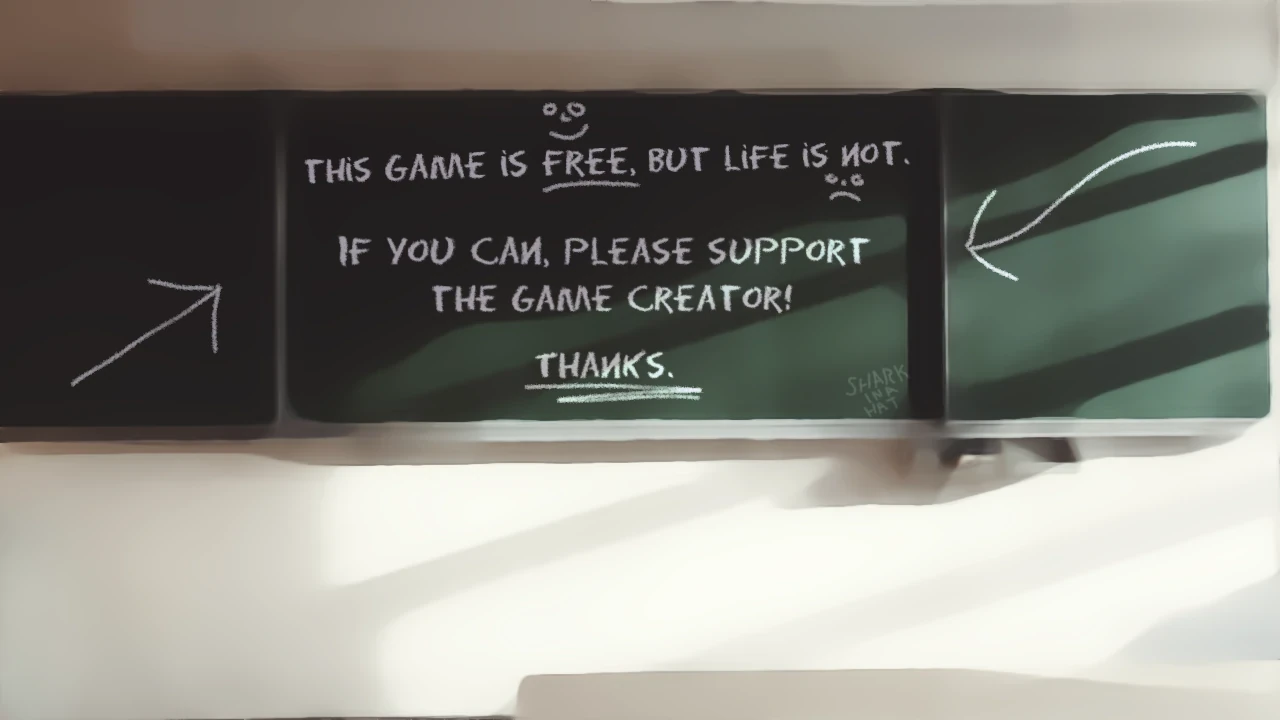 THIS GAME IS FREE, BUT LIFE IS NOT.
IF YOU CAN, PLEASE SUPPORT
THE GAME CREATOR!
THANKS.
SHARK
IN A
HAT